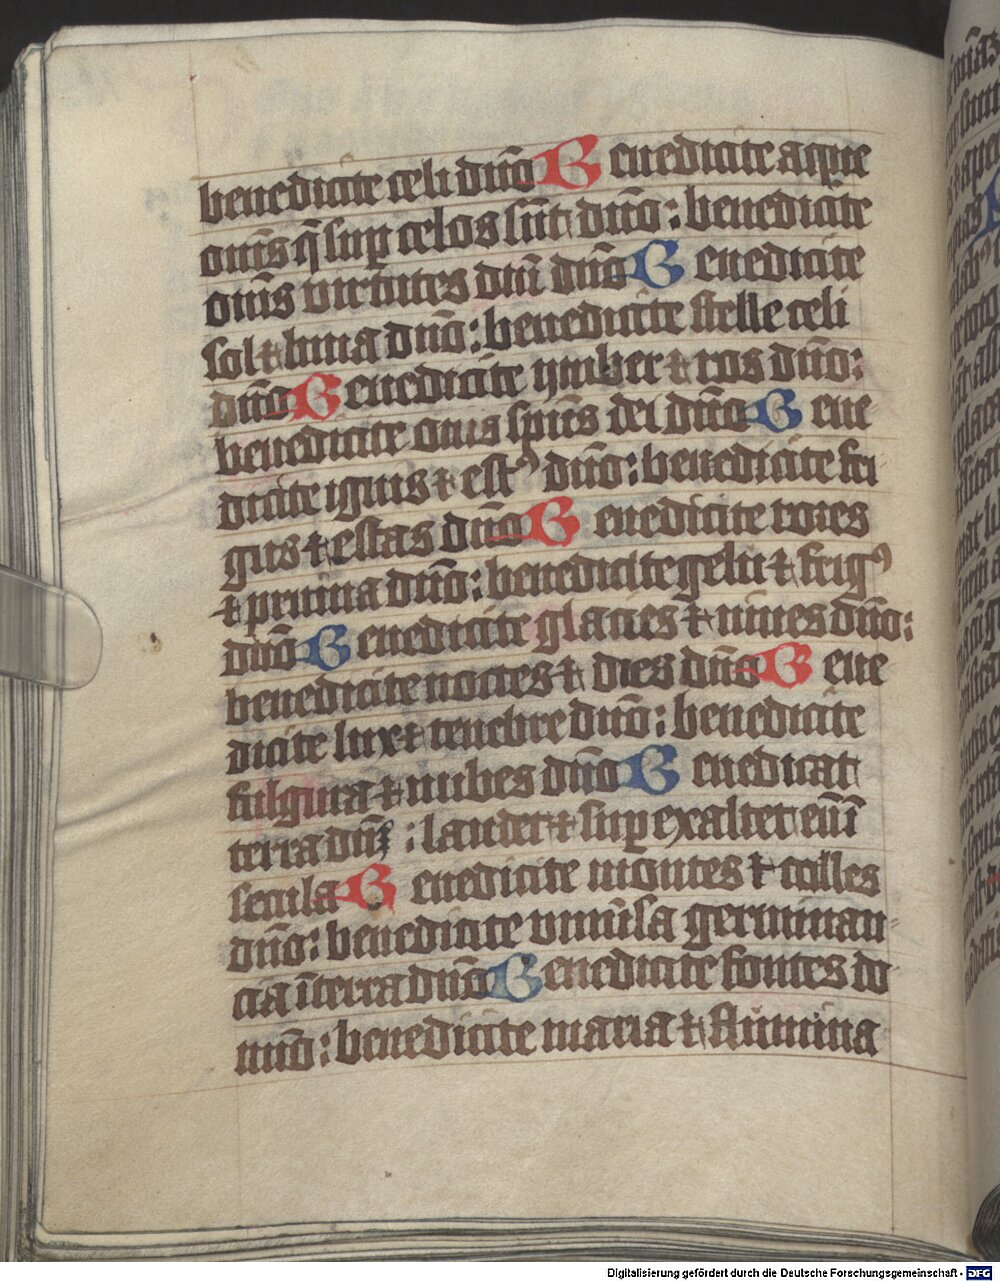 benedicite celi dn̄o Benedicite aque
om̄s q̄ sup celos sūt dn̄o : benedicite
om̄s virtutes dn̄i dn̄o Benedicite
sol ⁊ luna dn̄o : benedicite stelle celi
dn̄o Benedicite ymber ⁊ ros dn̄o :
benedicite om̄s spūs dei dn̄o Bene
dicite ignis ⁊ estꝰ dn̄o : benedicite fri
gus ⁊ estas dn̄o Benedicite rores
⁊ pruina dn̄o : benedicite gelu ⁊ frigꝰ
dn̄o Benedicite glacies ⁊ niues dn̄o :
benedicite noctes ⁊ dies dn̄o Bene
dicite lux ⁊ tenebre dn̄o : benedicite
fulgura ⁊ nubes dn̄o Benedicat
terra dn̄m : laudet ⁊ sup exaltet eū ī
secula Benedicite montes ⁊ colles
dn̄o : benedicite vniūsa germinan
cia ī terra dn̄o Benedicite fontes do
mīo : benedicite maria ⁊ flumina
Digitalisierung gefördert durch die Deutsche Forschungsgemeinschaft - DFG